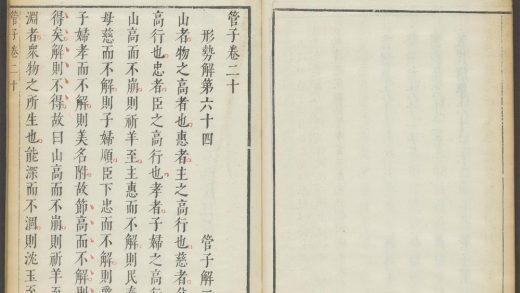 管子卷二十
形勢解第六十四　管子解
山者物之高者也惠者主之高行也慈者
高行也忠者臣之高行也孝者子婦之高
山高而不崩則祈羊至主惠而不解則民奉
母慈而不解則子婦順臣下忠而不解則
子婦孝而不解則美名附故節高而不解則
得矣解則不得故曰山高而不崩則祈羊至
淵者衆物之所生也能深而不涸則沈玉至
管子卷二十